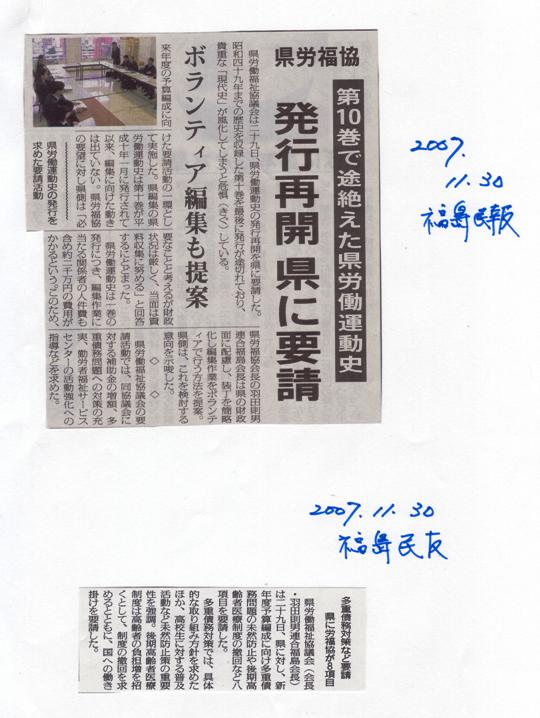 県労福協
第10巻で途絶えた県労働運動史
発行再開 県に要請
ボランティア編集も提案
県労働福祉協議会は二十九日、県労働運動史の発行再開を県に要請した。
昭和四十九年までの歴史を収録した第十巻を最後に発行が途切れており、
貴重な「現代史」が風化してしまうと危惧（きぐ）している。
来年度の予算編成に向
けた要請活動の一環とし
て実施した。県編集の県
労働運動史は第十巻が平
成十年一月に発行されて
以来、編集に向けた動き
は出ていない。県労福協
の要望に対し県側は「必
要なことと考えるが財政
状況は厳しく、当面は資
料収集に努める」と回答
するにとどまった。
県労働運動史は一巻の
発行につき、編集作業に
当たる関係者の人件費も
含め約二千万円の費用が
かかるということのため、
県労福協会長の羽田則男
連合福島会長は県の財政
面に配慮し、装丁を簡略
化し編集作業をボランテ
ィアで行う方法を提案。
県側は、これを検討する
意向を示唆した。
◇ ◇
県労働福祉協議会の要
請活動では、同協議会に
対する補助金の増額、多
重債務問題への対策の充
実、勤労者福祉サービス
センターの活動強化への
指導などを求めた。
県労働運動史の発行を
求めた要請活動
2007.
11.30
福島民報
2007.11.30
福島民友
多重債務対策など要請
県に労福協が8項目
県労働福祉協議会（会長
・羽田則男連合福島会長）
は二十九日、県に対し、新
年度予算編成に向け多重債
務問題の未然防止や後期高
齢者医療制度の撤回など八
項目を要請した。
多重債務対策では、具体
的な取り組み方針を求めた
ほか、高校生に対する普及
活動など未然防止策の重要
性を強調。後期高齢者医療
制度は高齢者の負担増を招
くとして、制度の撤回を求
めるとともに、国への働き
掛けを要請した。